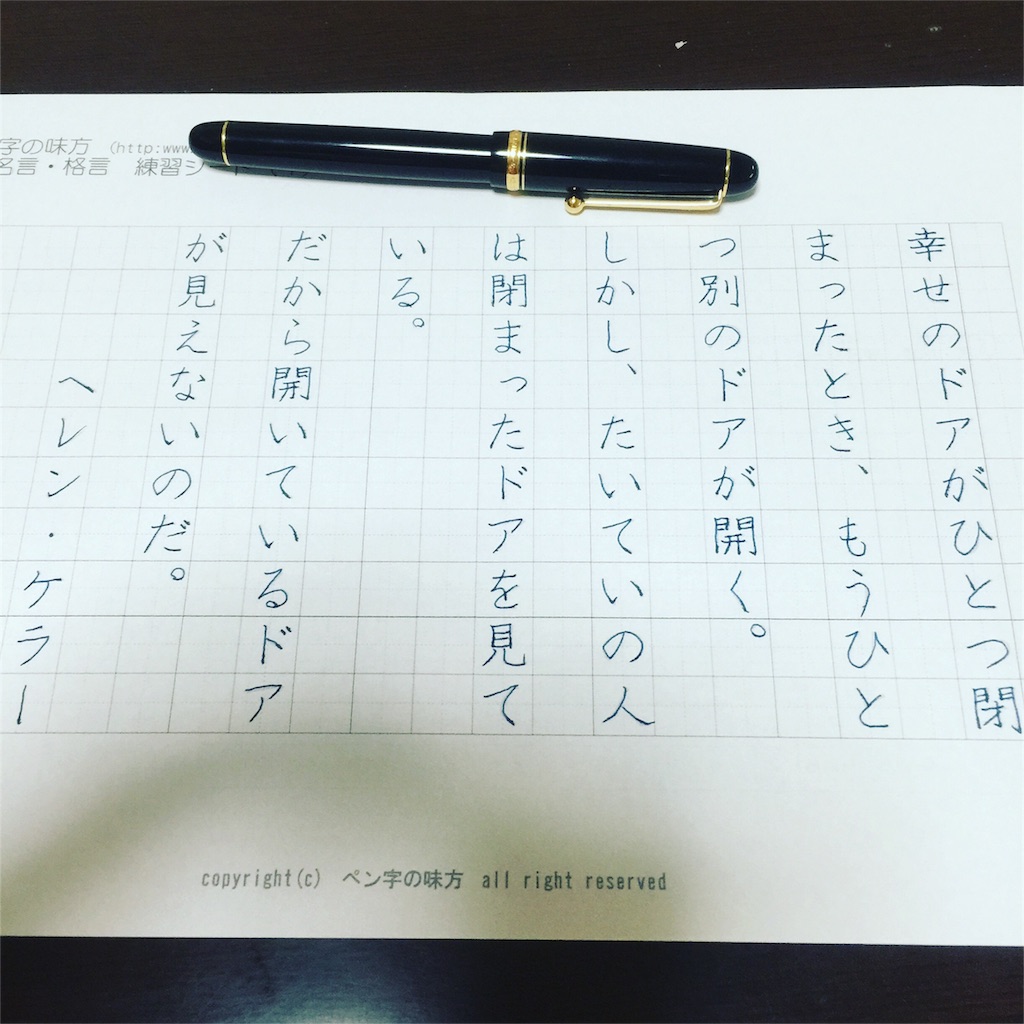 字の味方 (http:www.
名言・格言 練習シート
幸せのドアがひとつ閉
まったとき、もうひと
つ別のドアが開く。
しかし、たいていの人
は閉まったドアを見て
いる。
だから開いているドア
が見えないのだ。
ヘレン・ケラー
copyright(c) ペン字の味方 all right reserved